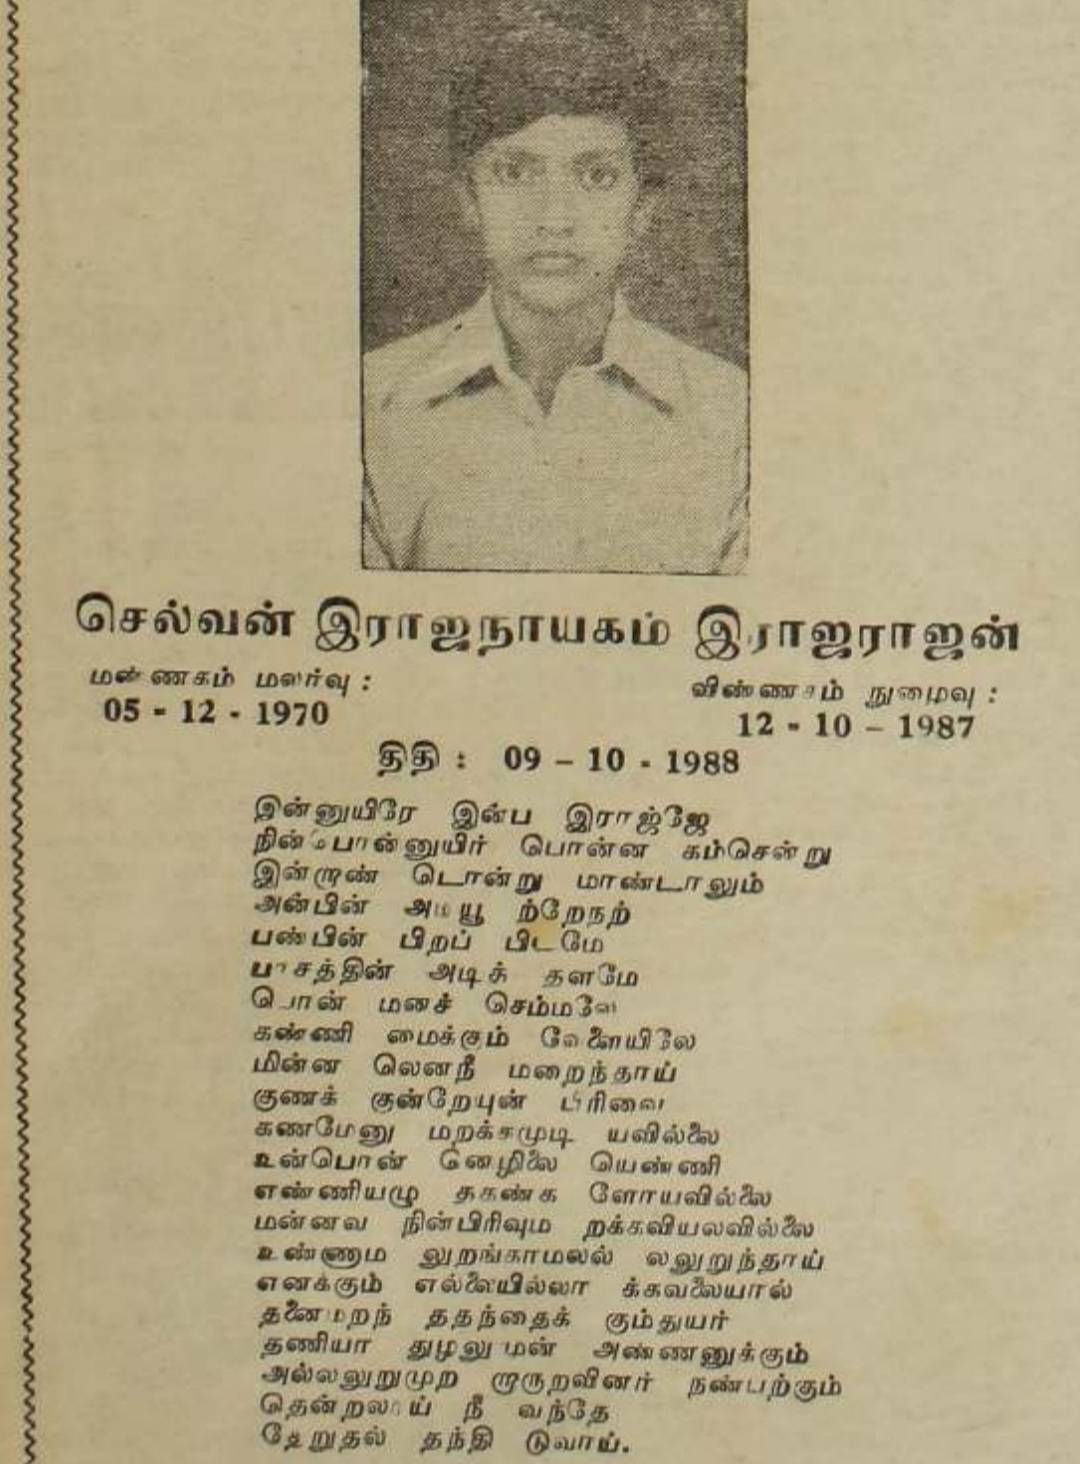 செல்வன் இராஜநாயகம் இராஜராஜன்
மண்ணகம் மலர்வு :
05 - 12 - 1970
விண்ணகம் நுழைவு :
12 - 10 - 1987
திதி : 09 - 10 - 1988
இன்னுயிரே இன்ப இராஜ்ஜே
நின்பொன்னுயிர் பொன்ன கம்சென்று
இன்றாண் டொன்று மாண்டாலும்
அன்பின்
பண்பின் பிறப் பிடமே
பாசத்தின் அடிக் தளமே
பொன் மனச் செம்மலே
கண்ணி மைக்கும் வேளையிலே
மின்ன லெனநீ மறைந்தாய்
குணக் குன்றேயுன் பிரிவை
கணமேனு மறக்கமுடி யவில்லை
உன்பொன் னெழிலை யெண்ணி
எண்ணியழு தகண்க ளோயவில்லை
மன்னவ நின்பிரிவும றக்கவியலவில்லை
உண்ணாம லுறங்காமலல் லலுறுந்தாய்
எனக்கும் எல்லையில்லா க்கவலையால்
தனைமறந் ததந்தைக் கும்துயர்
தணியா துழலுமுன் அண்ணனுக்கும்
அல்லலுறுமுற றாருறவினர் நண்பற்கும்
தென்றலாய் நீ வந்தே
தேறுதல் தந்தி டுவாய்.